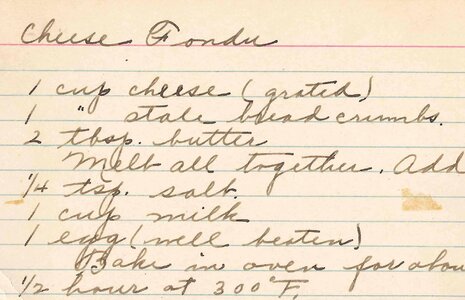 Cheese Fondu
1 cup cheese (grated)
1 " stale bread crumbs.
2 tbsp. butter
Melt all together. Add
1/4 tsp. salt.
1 cup milk
1 egg (well beaten)
Bake in oven for abou
1/2 hour at 300°F.